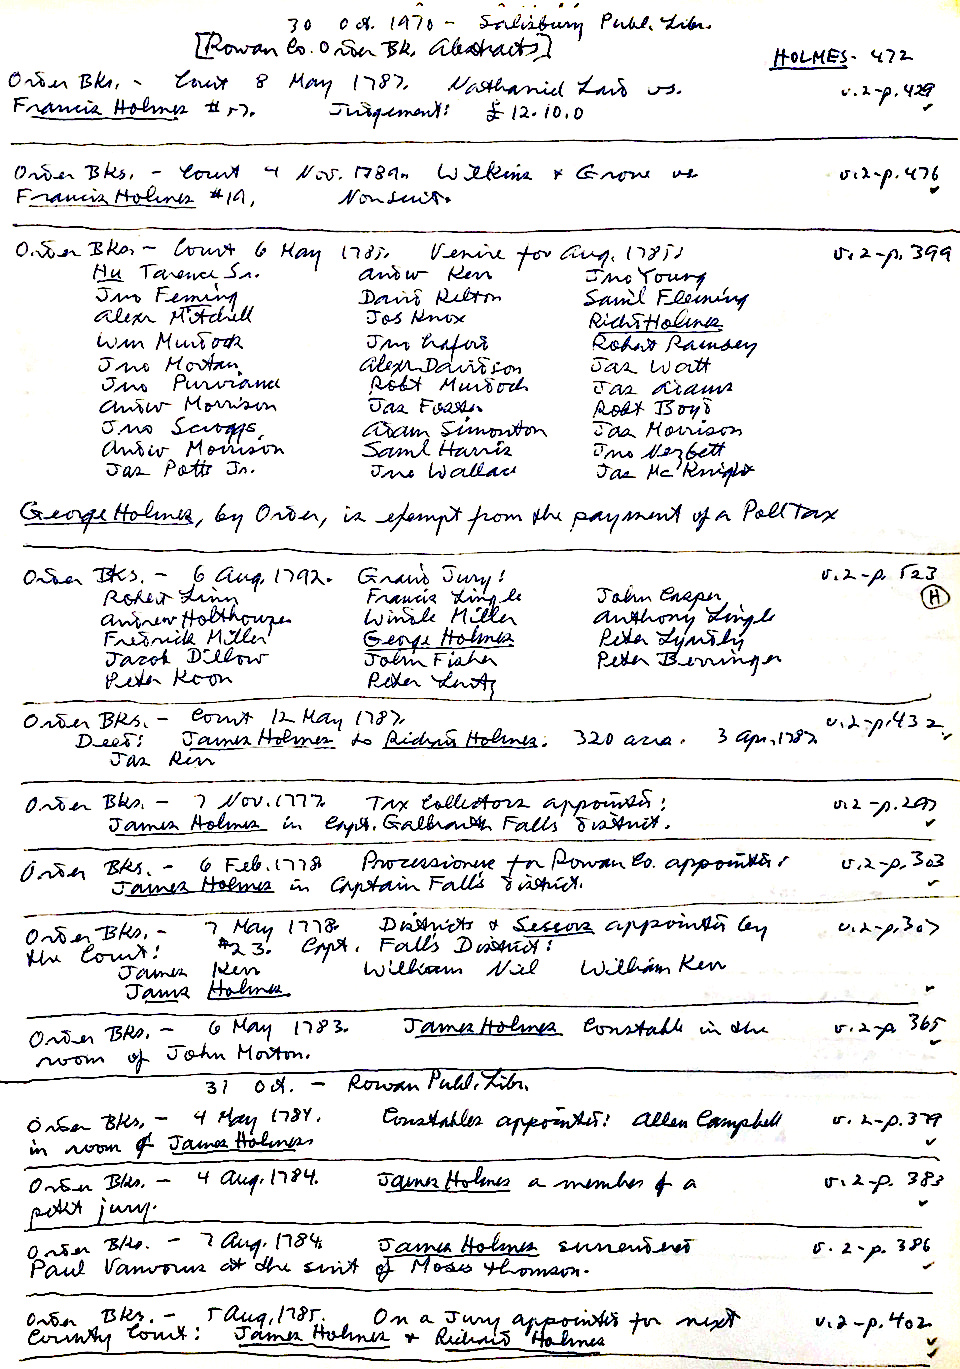 30 Oct. 1970 - Salisbury Publ. Libr.
[Rowan Co. Order Bk. Abstracts]
HOLMES - 472
Order Bks. - Court 8 May 1787. Nathaniel vs. v.2-p.429
Francis Holmes #57. Judgement: £12.10.0
Order Bks. - Court 4 Nov. 1789. Wilkins & Grove vs v.2-p.476
Francis Holmes #19, Nonsuit.
Order Bks - Court 6 May 1785. Venire for Aug. 1785: v.2-p.399
Hu Tarence Sr. Andw Kerr Jno Young
Jno Feming David Kelton Saml Fleming
Alexr Mitchell Jos Knox Richd Holmes
Wm Murdock Jno Robert Ramsey
Jno Mortan Alexr Davidson Jas Watt
Jno Purviance Robt Murdock Jas Adams
Andw Morrison Jas Foster Robt Boyd
Jno Scroggs Adam Simonton Jas Morrison
Andw Morrison Saml Harris Jno Nezbett
Jas Potts Jr. Jno Wallace Jas McKnight
George Holmes, by Order, is exempt from the payment of a Poll Tax
Order Bks. - 6 Aug. 1792. Grand Jury: v.2-p.523
Robert Linn Francis Lingle John Casper (H)
Andrew Holthouzer Windle Miller Anthony Lingle
Fredrick Miller George Holmes Peter
Jacob Dillow John Fisher Peter Berringer
Peter Koon Peter Lentz
Order Bks. - Court 12 May 1787. v.2-p.432
Deed: James Holmes to Richard Holmes. 320 acres. 3 Apr. 1787
Jas Kerr
Order Bks. - 7 Nov. 1777. Tax Collectors appointed: v.2-p.297
James Holmes in Capt. Galbraith Falls district.
Order Bks. - 6 Feb. 1778 Processioners for Rowan Co. appointed: v.2-p.303
James Holmes in Captain Falls district.
Order Bks. - 7 May 1778. Districts & Sessors appointed by v.2-p.307
the Court: #23. Capt. Falls District:
James Kerr William Niel William Kerr
James Holmes.
Order Bks. - 6 May 1783. James Holmes Constable in the v.2-p.365
room of John Morton.
31 Oct. - Rowan Publ. Libr.
Order Bks. - 4 May 1784. Constables appointed: Allen Campbell v.2-p.379
in room of James Holmes
Order Bks. - 4 Aug. 1784. James Holmes a member of a v.2-p.383
petit jury.
Order Bks. - 7 Aug. 1784. James Holmes surrendered v.2-p.386
Paul at the suit of Moses Thomson.
Order Bks. - 5 Aug. 1785. On a Jury appointed for next v.2-p.402
County Court: James Holmes & Richard Holmes